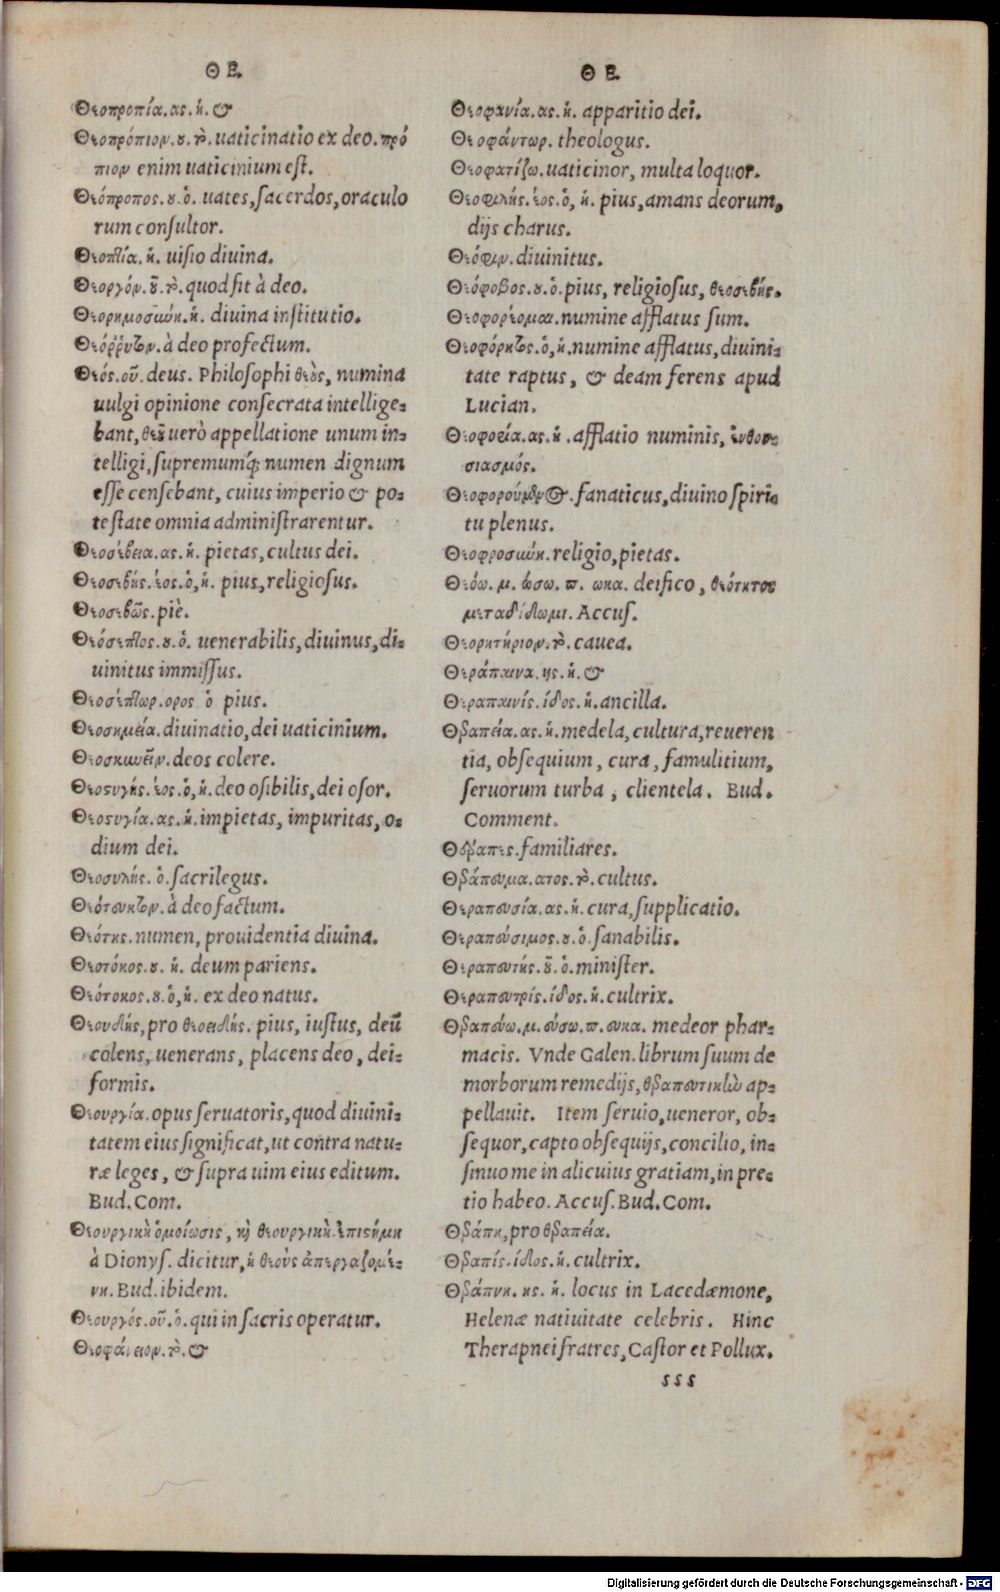 ΘΕ.
Θεοπροπία.ας.ἡ. &
Θεοπρόπιον.ου.τὸ. uaticinatio ex deo. πρό
πιον enim uaticinium est.
Θεόπροπος.ου.ὁ. uates, sacerdos, oraculo
rum consultor.
Θεοπτία.ἡ. uisio diuina.
Θεοργόν.οῦ.τὸ. quod fit à deo.
Θεορημοσύνη.ἡ. diuina institutio.
Θεόῤῥυτον. à deo profectum.
Θεός.οῦ. deus. Philosophi θεὸς, numina
uulgi opinione consecrata intellige-
bant, θεοῦ uerò appellatione unum in-
telligi, supremumq́; numen dignum
esse censebant, cuius imperio & po-
testate omnia administrarentur.
Θεοσέβεια.ας.ἡ. pietas, cultus dei.
Θεοσεβής.έος.ὁ, ἡ. pius, religiosus.
Θεοσεβῶς. piè.
Θεόσεπτος.ου.ὁ. uenerabilis, diuinus, di-
uinitus immissus.
Θεοσέπτωρ.ορος ὁ pius.
Θεοσημεία. diuinatio, dei uaticinium.
Θεοσκυνεῖν. deos colere.
Θεοστυγής.έος.ὁ, ἡ. deo osibilis, dei osor.
Θεοστυγία.ας.ἡ. impietas, impuritas, o-
dium dei.
Θεοσυλής. ὁ. sacrilegus.
Θεότευκτον. à deo factum.
Θεότης. numen, prouidentia diuina.
Θεοτόκος.ου. ἡ. deum pariens.
Θεότοκος.ου.ὁ, ἡ. ex deo natus.
Θεουδής, pro θεοειδής. pius, iustus, deū
colens, uenerans, placens deo, dei-
formis.
Θεουργία. opus seruatoris, quod diuini-
tatem eius significat, ut contra natu-
ræ leges, & supra uim eius editum.
Bud. Com.
Θεουργικὴ ὁμοίωσις, καὶ θεουργικὴ ἐπιστήμη
à Dionys. dicitur, ἡ θεοὺς ἀπεργαζομέ-
νη. Bud. ibidem.
Θεουργός.οῦ.ὁ. qui in sacris operatur.
Θεοφάνειον.τὸ. &
ΘΕ.
Θεοφανία.ας.ἡ. apparitio dei.
Θεοφάντωρ. theologus.
Θεοφατίζω. uaticinor, multa loquor.
Θεοφιλής.έος.ὁ, ἡ. pius, amans deorum,
dijs charus.
Θεόφιν. diuinitus.
Θεόφοβος.ου.ὁ. pius, religiosus, θεοσεβής.
Θεοφορέομαι. numine afflatus sum.
Θεοφόρητος.ὁ, ἡ. numine afflatus, diuini-
tate raptus, & deam ferens apud
Lucian.
Θεοφορία.ας.ἡ. afflatio numinis, ἐνθου-
σιασμός.
Θεοφορούμενος. fanaticus, diuino spiri-
tu plenus.
Θεοφροσύνη. religio, pietas.
Θεόω. μ. ώσω. π. ωκα. deifico, θεότητος
μεταδίδωμι. Accus.
Θεορητήριον.τὸ. cauea.
Θεράπαινα.ης.ἡ. &
Θεραπαινίς.ίδος.ἡ. ancilla.
Θεραπεία.ας.ἡ. medela, cultura, reueren
tia, obsequium, cura, famulitium,
seruorum turba, clientela. Bud.
Comment.
Θέραπες. familiares.
Θεράπευμα.ατος.τὸ. cultus.
Θεραπευσία.ας.ἡ. cura, supplicatio.
Θεραπεύσιμος.ου.ὁ. sanabilis.
Θεραπευτής.οῦ.ὁ. minister.
Θεραπευτρίς.ίδος.ἡ. cultrix.
Θεραπεύω.μ.εύσω.π.ευκα. medeor phar-
macis. Vnde Galen. librum suum de
morborum remedijs, θεραπευτικὴν ap-
pellauit. Item seruio, ueneror, ob-
sequor, capto obsequijs, concilio, in-
sinuo me in alicuius gratiam, in pre-
tio habeo. Accus. Bud. Com.
Θεράπη, pro θεραπεία.
Θεραπίς.ίδος.ἡ. cultrix.
Θεράπνη. ης. ἡ. locus in Lacedæmone,
Helenæ natiuitate celebris. Hinc
Therapnei fratres, Castor et Pollux.
sss
Digitalisierung gefördert durch die Deutsche Forschungsgemeinschaft - DFG